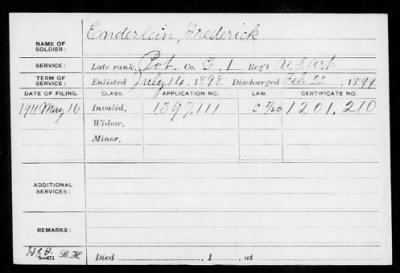 Enderlein, Frederick
NAME OF
SOLDIER:
SERVICE: Late rank, Pvt. Co. G, 1 Reg't
TERM OF
SERVICE: Enlisted July 14, 1898 Discharged Feb. 22, 1899
DATE OF FILING. CLASS. APPLICATION NO. LAW. CERTIFICATE NO.
1911 May 16 Invalid, 1397111 1201,210
Widow,
Minor,
ADDITIONAL
SERVICES:
REMARKS:
Died , 1 , at